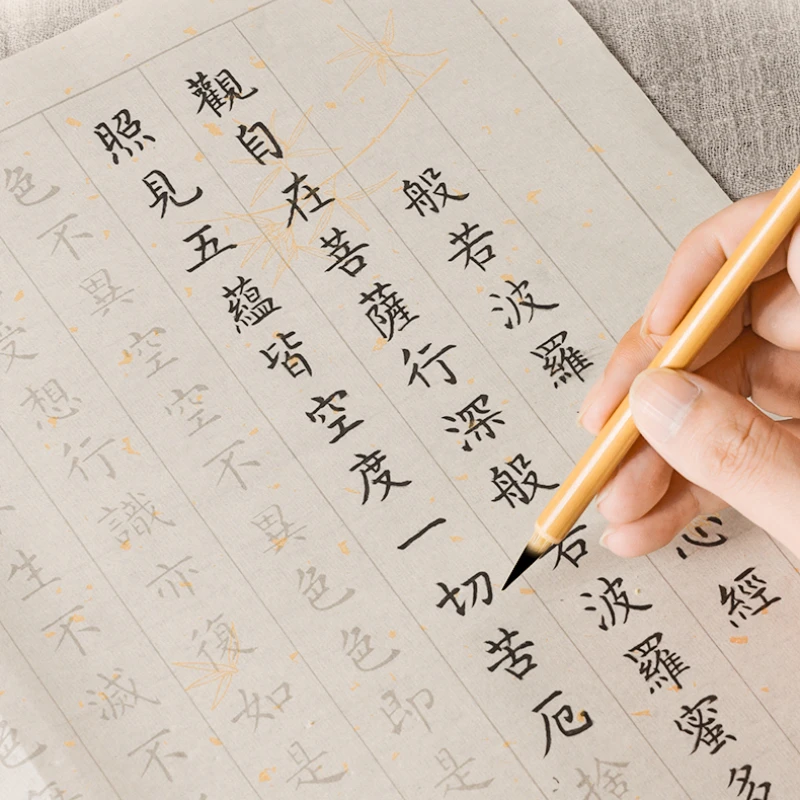 般若波羅心經
觀自在菩薩行深般若波羅蜜多
照見五蘊皆空度一切苦厄捨
色不異空空不異色色即是
受想行識亦復如是
不生不滅不
色